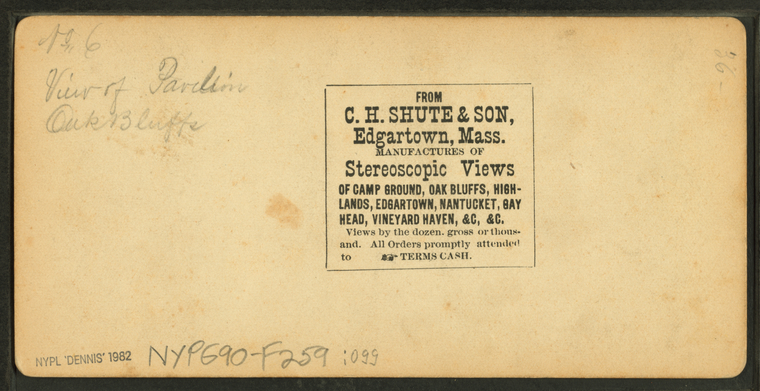 No 6
View of Pavilion
Oak Bluffs
FROM
C. H. SHUTE & SON,
Edgartown, Mass.
MANUFACTURES OF
Stereoscopic Views
OF CAMP GROUND, OAK BLUFFS, HIGH-
LANDS, EDGARTOWN, NANTUCKET, GAY
HEAD, VINEYARD HAVEN, &C, &C.
Views by the dozen. gross or thous-
and. All Orders promptly attended
to ☞ TERMS CASH.
NYPL 'DENNIS' 1982 NYPG90-F259 :099